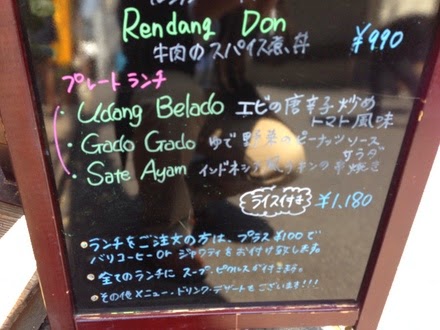 Rendang Don
牛肉のスパイス煮丼 ¥990
プレートランチ
・Udang Belado エビの唐辛子炒め
トマト風味
・Gado Gado ゆで野菜のピーナッツソース
サラダ
・Sate Ayam インドネシア風チキンの串焼き
ライス付き ¥1,180
ランチをご注文の方は、プラス¥100で
バリコーヒー or ジャワティをお付け致します。
全てのランチに スープ・ピクルスが付きます。
その他メニュー・ドリンク・デザートもございます!!!